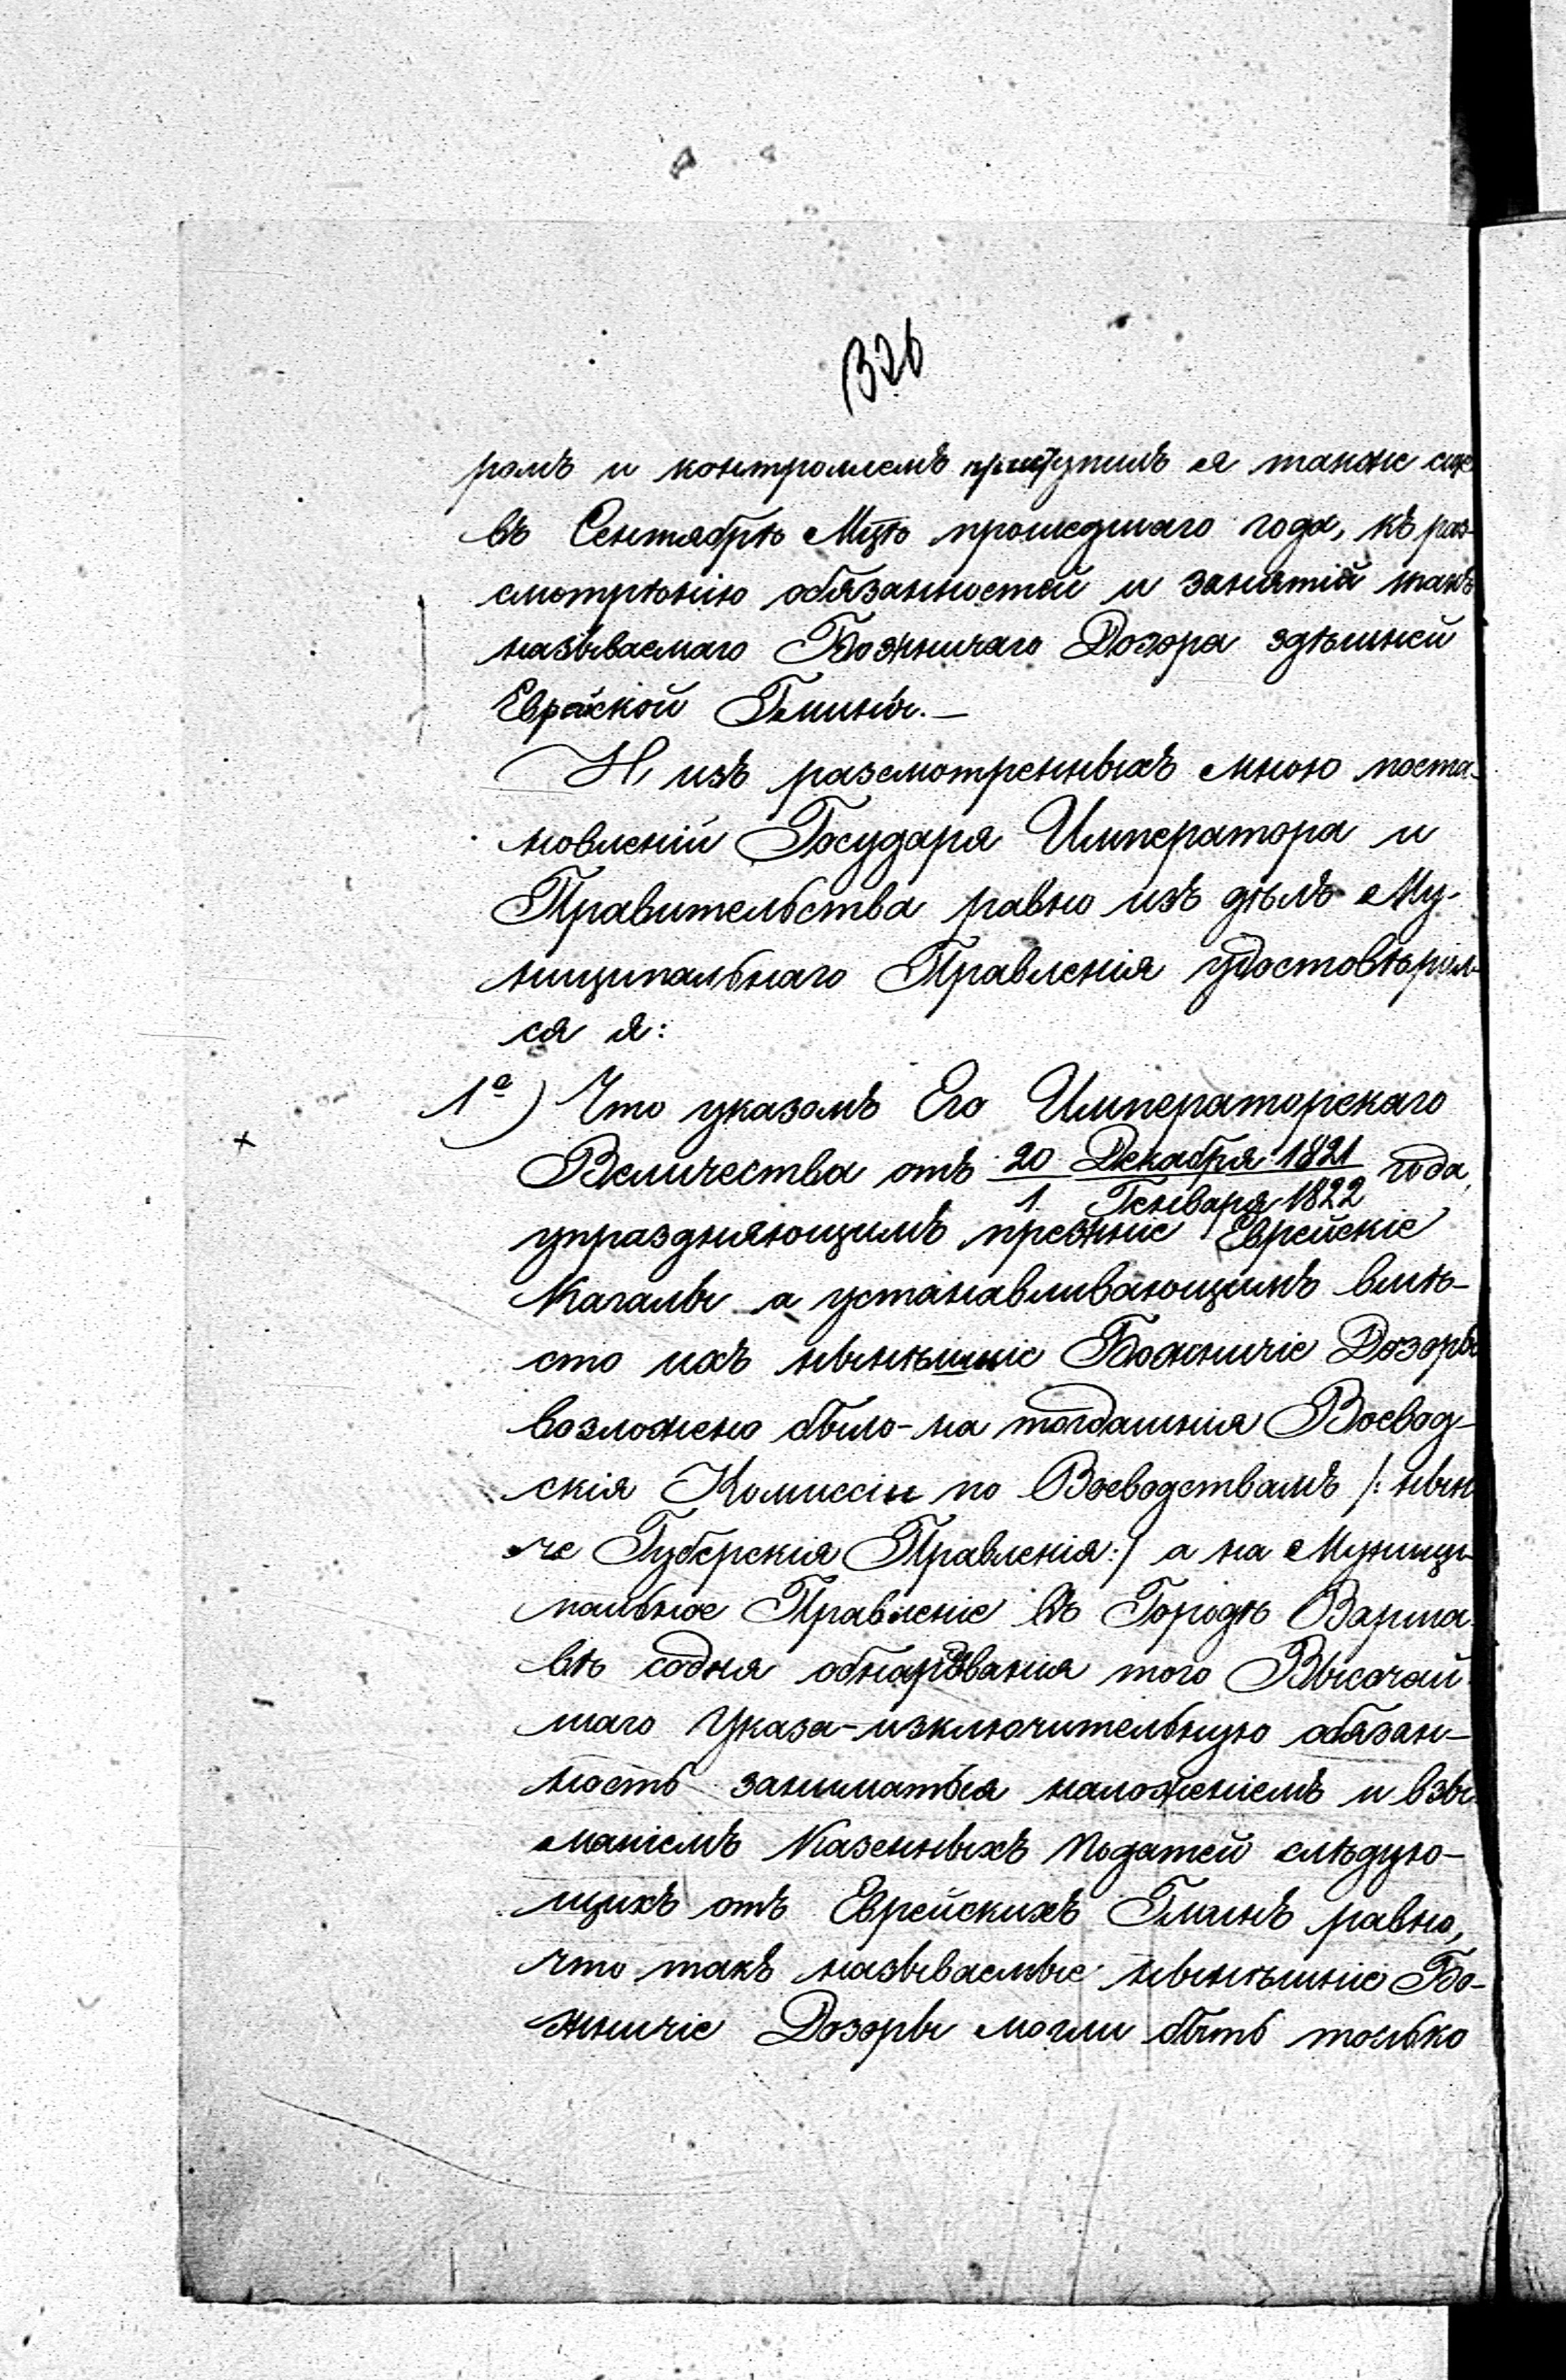 1326
ромъ и контролемъ приступилъ я также еще
въ Сентябрѣ Мцѣ прошедшаго года, къ раз-
смотрѣнію обязанностей и занятій такъ
называемаго Божничаго Дозора здѣшней
Еврейской Гмины.—
И, изъ разсмотренныхъ мною поста-
новленій Государя Императора и
Правительства равно изъ дѣлъ Му-
ниципальнаго Правленія удостовѣрил-
ся я:
1º) Что указомъ Его Императорскаго
Величества отъ 20 Декабря 1821 / 1 Генваря 1822 года,
упраздняющимъ прежніе Еврейскіе
Кагалы а устанавливающимъ вмѣ-
сто ихъ нынѣшніе Божничіе Дозоры
возложено было-на тогдашнія Воевод-
скія Комиссіи по Воеводствамъ /: нын
че Губерскія Правленія:/ а на Муници-
пальное Правленіе въ Городѣ Варша-
вѣ содня обнарованія того Высочай-
шаго Указа-изключительную обязан-
ность заниматься наложеніемъ и взы-
маніемъ Казенныхъ Податей слѣдую-
щихъ отъ Еврейскихъ Гминъ равно,
что такъ называемые нынѣшніе Бо-
жничіе Дозоры могли быть только